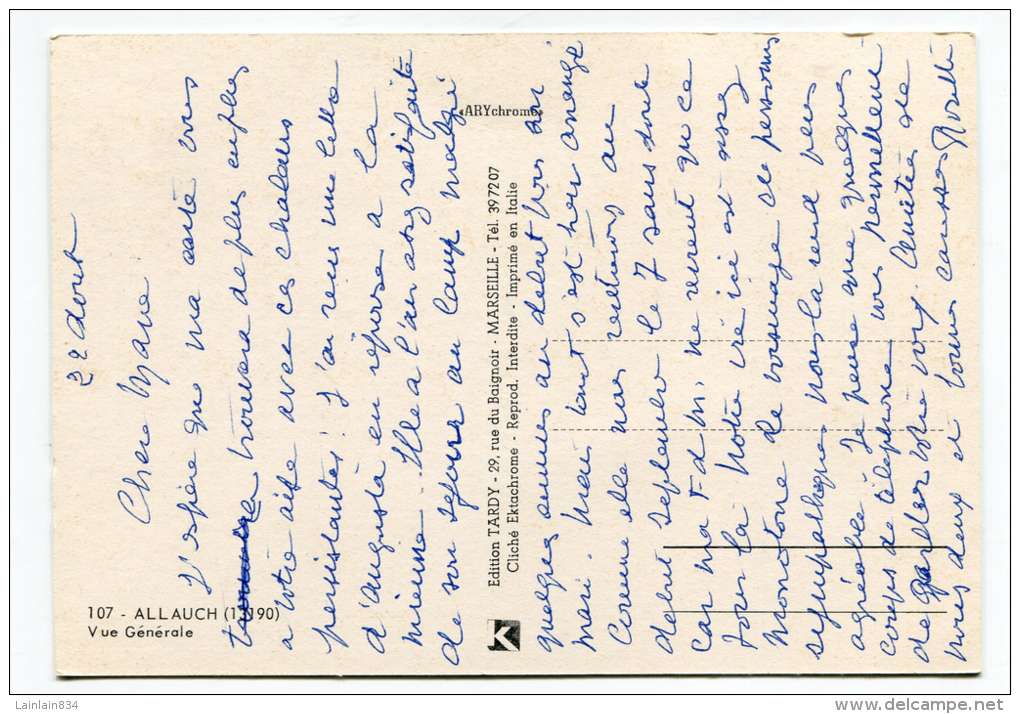 22 Aout
Chère Marie
J'espère que ma carte vous
trouvera de plus en plus
a votre aise avec ces chaleurs
persistantes! J'ai reçu une lettre
d'Augusta en réponse à la
mienne. Elle a l'air assez satisfaite
de son séjour au camp malgré
quelques au début
mari. mais tout s'est bien arrangé
Comme elle nous rentrons au
début septembre le 7 sans doute
car ma F d M. ne revient que ce
jour là. Notre vie ici est assez
monotone de voisinage de personnes
sympathiques nous la rend plus
agréable. Je pense que quelques
coups de téléphone vous permettent
de garder votre Amitiés de
nous deux et bonnes caresses
107 - ALLAUCH (13190)
Vue Générale
«ARYchrome»
Edition TARDY - 29, rue du Baignoir - MARSEILLE - Tél. 397207
Cliché Ektachrome - Reprod. Interdite - Imprimé en Italie
K
Lainlain834
delcampe.net